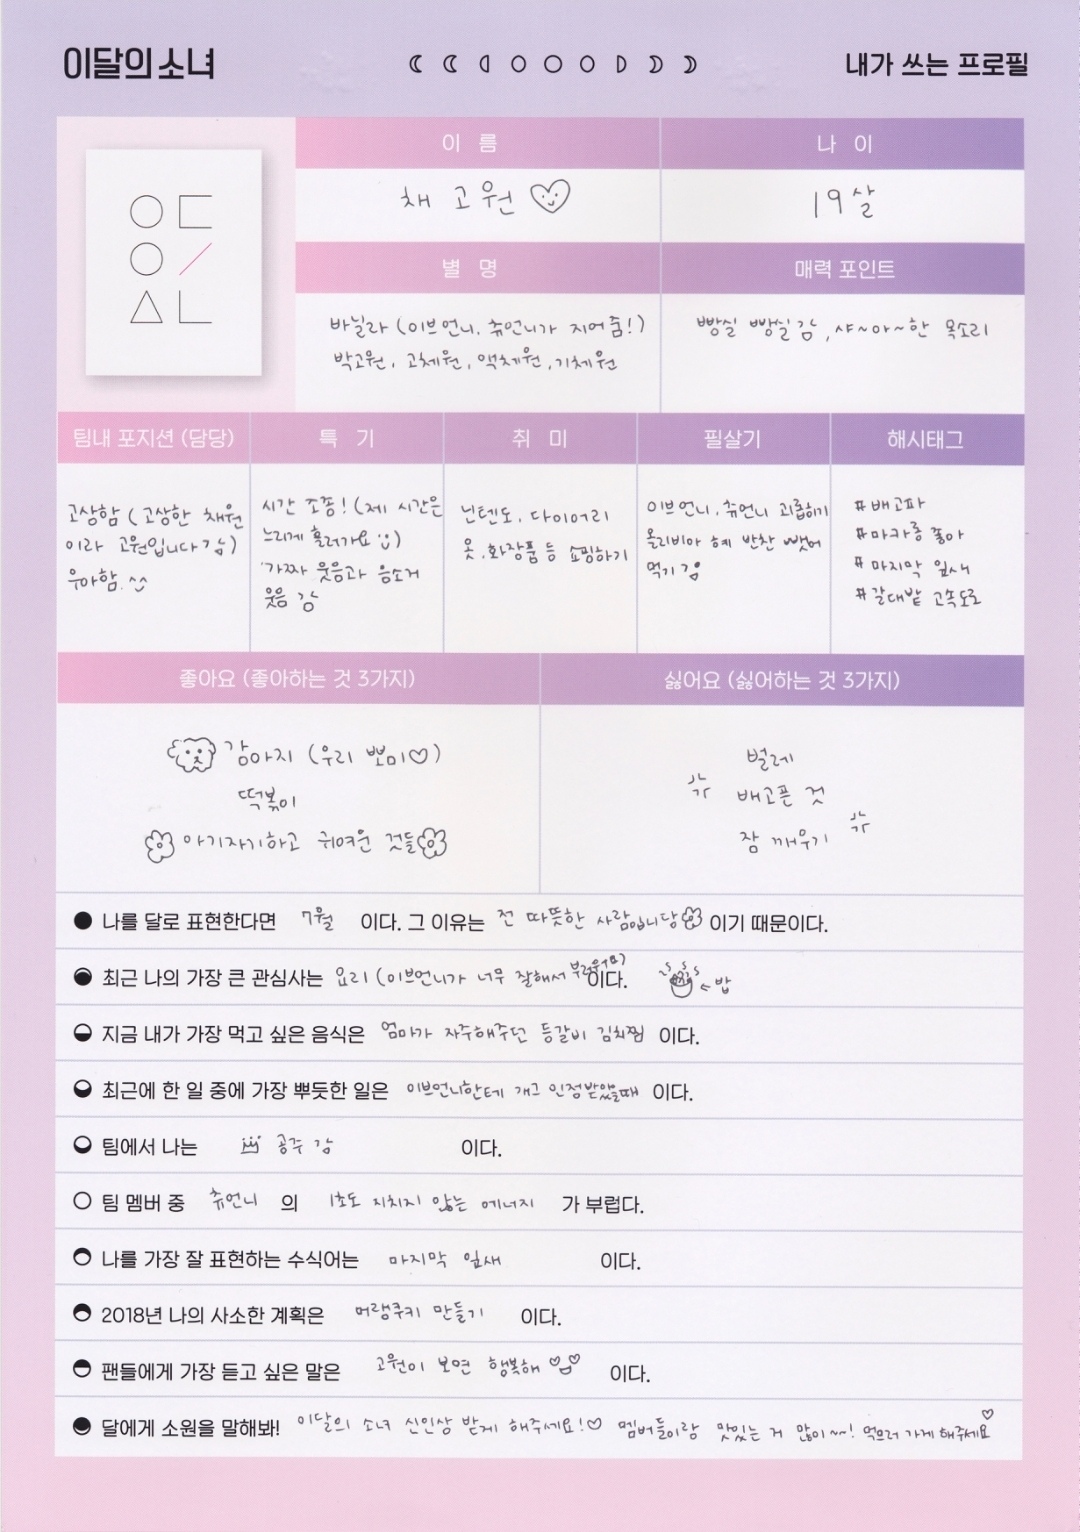 이달의 소녀
내가 쓰는 프로필
이 름
나 이
채 고 원
19살
별 명
매력 포인트
바닐라 (이브언니, 츄언니가 지어줌!)
박고원, 고체원, 액체원, 기체원
빵실 빵실감, 샤~아~한 목소리
팀내 포지션 (담당)
특 기
취 미
필살기
해시태그
고상함 (고상한 채원
이라 고원입니다감)
우아함.^^
시간 조종! (제 시간은
느리게 흘러가요 :))
가짜 웃음과 음소거
웃음 감
닌텐도, 다이어리
옷, 화장품 등 쇼핑하기
이브언니, 츄언니 괴롭히기
올리비아 혜 반찬 뺏어
먹기감
#배고파
#마카롱 좋아
#마지막 잎새
#갈대밭 고속도로
좋아요 (좋아하는 것 3가지)
싫어요 (싫어하는 것 3가지)
감아지 (우리 뽀미♡)
떡볶이
아기자기하고 귀여운 것들
벌레
배고픈 것
잠 깨우기
나를 달로 표현한다면 7월 이다. 그 이유는 전 따뜻한 사람입니당 이기 때문이다.
최근 나의 가장 큰 관심사는 요리 (이브언니가 너무 잘해서 부러워요) 이다. ←밥
지금 내가 가장 먹고 싶은 음식은 엄마가 자주해주던 등갈비 김치찜 이다.
최근에 한 일 중에 가장 뿌듯한 일은 이브언니한테 개그 인정받았을때 이다.
팀에서 나는 공주 감 이다.
팀 멤버 중 츄언니 의 1초도 지치지 않는 에너지 가 부럽다.
나를 가장 잘 표현하는 수식어는 마지막 잎새 이다.
2018년 나의 사소한 계획은 머랭쿠키 만들기 이다.
팬들에게 가장 듣고 싶은 말은 고원이 보면 행복해 이다.
달에게 소원을 말해봐! 이달의 소녀 신인상 받게 해주세요!♡ 멤버들이랑 맛있는 거 많이~~! 먹으러 가게 해주세요♡